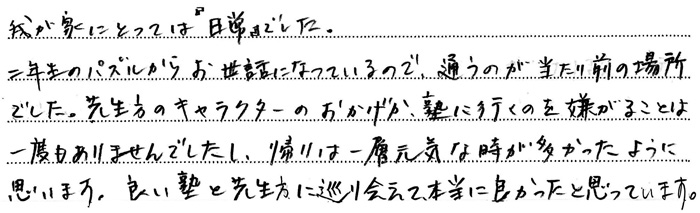 我が家にとっては『日常』でした。
二年生のパズルからお世話になっているので、通うのが当たり前の場所
でした。先生方のキャラクターのおかげか、塾に行くのを嫌がることは
一度もありませんでしたし、帰りは一層元気な時が多かったように
思います。良い塾と先生方に巡り会えて本当に良かったと思っています。